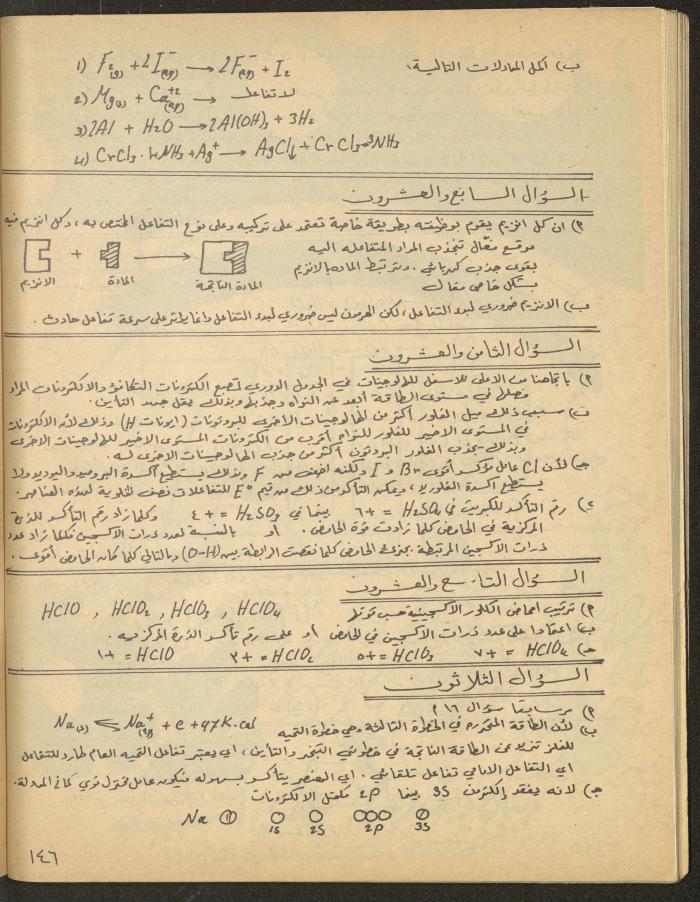 ب) اكمل المعادلات التالية:
1) F₂(g) + 2I⁻(aq) → 2F⁻(aq) + I₂
2) Mg(s) + Ca⁺²(aq) → لا تفاعل
3) 2Al + H₂O → 2Al(OH)₃ + 3H₂
4) CrCl₃·4NH₃ + Ag⁺ → AgCl↓ + CrCl₃
السؤال السابع والعشرون
٢) ان كل انزيم يقوم بوظيفته بطريقة خاصة تعتمد على تركيبه وعلى نوع التفاعل المختص به ، وكل انزيم فيه
موقع فعّال تنجذب المواد المتفاعله اليه
بقوى جذب كهربائي . وترتبط الماده بالانزيم
بشكل خاص فعال
+ →
الانزيم المادة المادة الناتجة
ب) الانزيم ضروري لبدء التفاعل ، لكن الهرمون ليس ضروري لبدء التفاعل وانما يؤثر على سرعة تفاعل حادث .
السؤال الثامن والعشرون
٢) باتجاهنا من الاعلى للاسفل للهالوجينات في الجدول الدوري تصبح الكترونات التكافؤ والالكترونات المراد
فصلها في مستوى الطاقة أبعد عن النواه وجذبها وبذلك يقل جهد التأين .
ب) سبب ذلك ميل الفلور أكثر من الهالوجينات الأخرى للبروتونات (ايونات H) وذلك لأن الالكترونات
في المستوى الاخير للفلور للنواه أقرب من الكترونات المستوى الاخير للهالوجينات الاخرى
وبذلك يجذب الفلور البروتون أكثر من جذب الهالوجينات الأخرى له .
جـ) لأن Cl عامل مؤكسد أقوى Br و I ولكنه اضعف من F وبذلك يستطيع أكسدة البروميد واليوديد ولا
يستطيع اكسدة الفلوريد ، ويمكن التأكد من ذلك من قيم E° للتفاعلات نصف الخلوية لهذه العناصر .
د) رقم التأكسد للكبريت في H₂SO₄ = +٦ بينما في H₂SO₃ = +٤ وكلما زاد رقم التأكسد للذرة
المركزية في الحامض كلما زادت قوة الحامض . أو بالنسبة لعدد ذرات الاكسجين فكلما زاد عدد
ذرات الأكسجين المرتبطة بجزيء الحامض كلما نقصت الرابطة بين (O-H) وبالتالي كلما كان الحامض أقوى .
السؤال التاسع والعشرون
٢) ترتيب احماض الكلور الاكسجينية حسب قوتها HClO , HClO₂ , HClO₃ , HClO₄
ب) اعتمادا على عدد ذرات الأكسجين في الحامض أو على رقم تأكسد الذرة المركزية .
جـ) HClO₄ = +٧ HClO₃ = +٥ HClO₂ = +٣ HClO = +١
السؤال الثلاثون
٢) مر سابقا سؤال ١٦ ٢
ب) لأن الطاقة المتحرره في الخطوة الثالثة وهي خطوة التميه Na(s) ⇌ Na⁺(aq) + e + 47K.cal
للفلز تزيد عن الطاقة الناتجة في خطوتي التبخر والتأين ، اي يعتبر تفاعل التميه العام طارد للتفاعل
اي التفاعل الامامي تفاعل تلقائي . اي العنصر يتأكسد بسهوله فيكون عامل مختزل قوي كما في المعدلة .
جـ) لانه يفقد إلكترون 3S بينما 2P مكتمل الالكترونات
Na 1S 2S 2P 3S
١٤٦